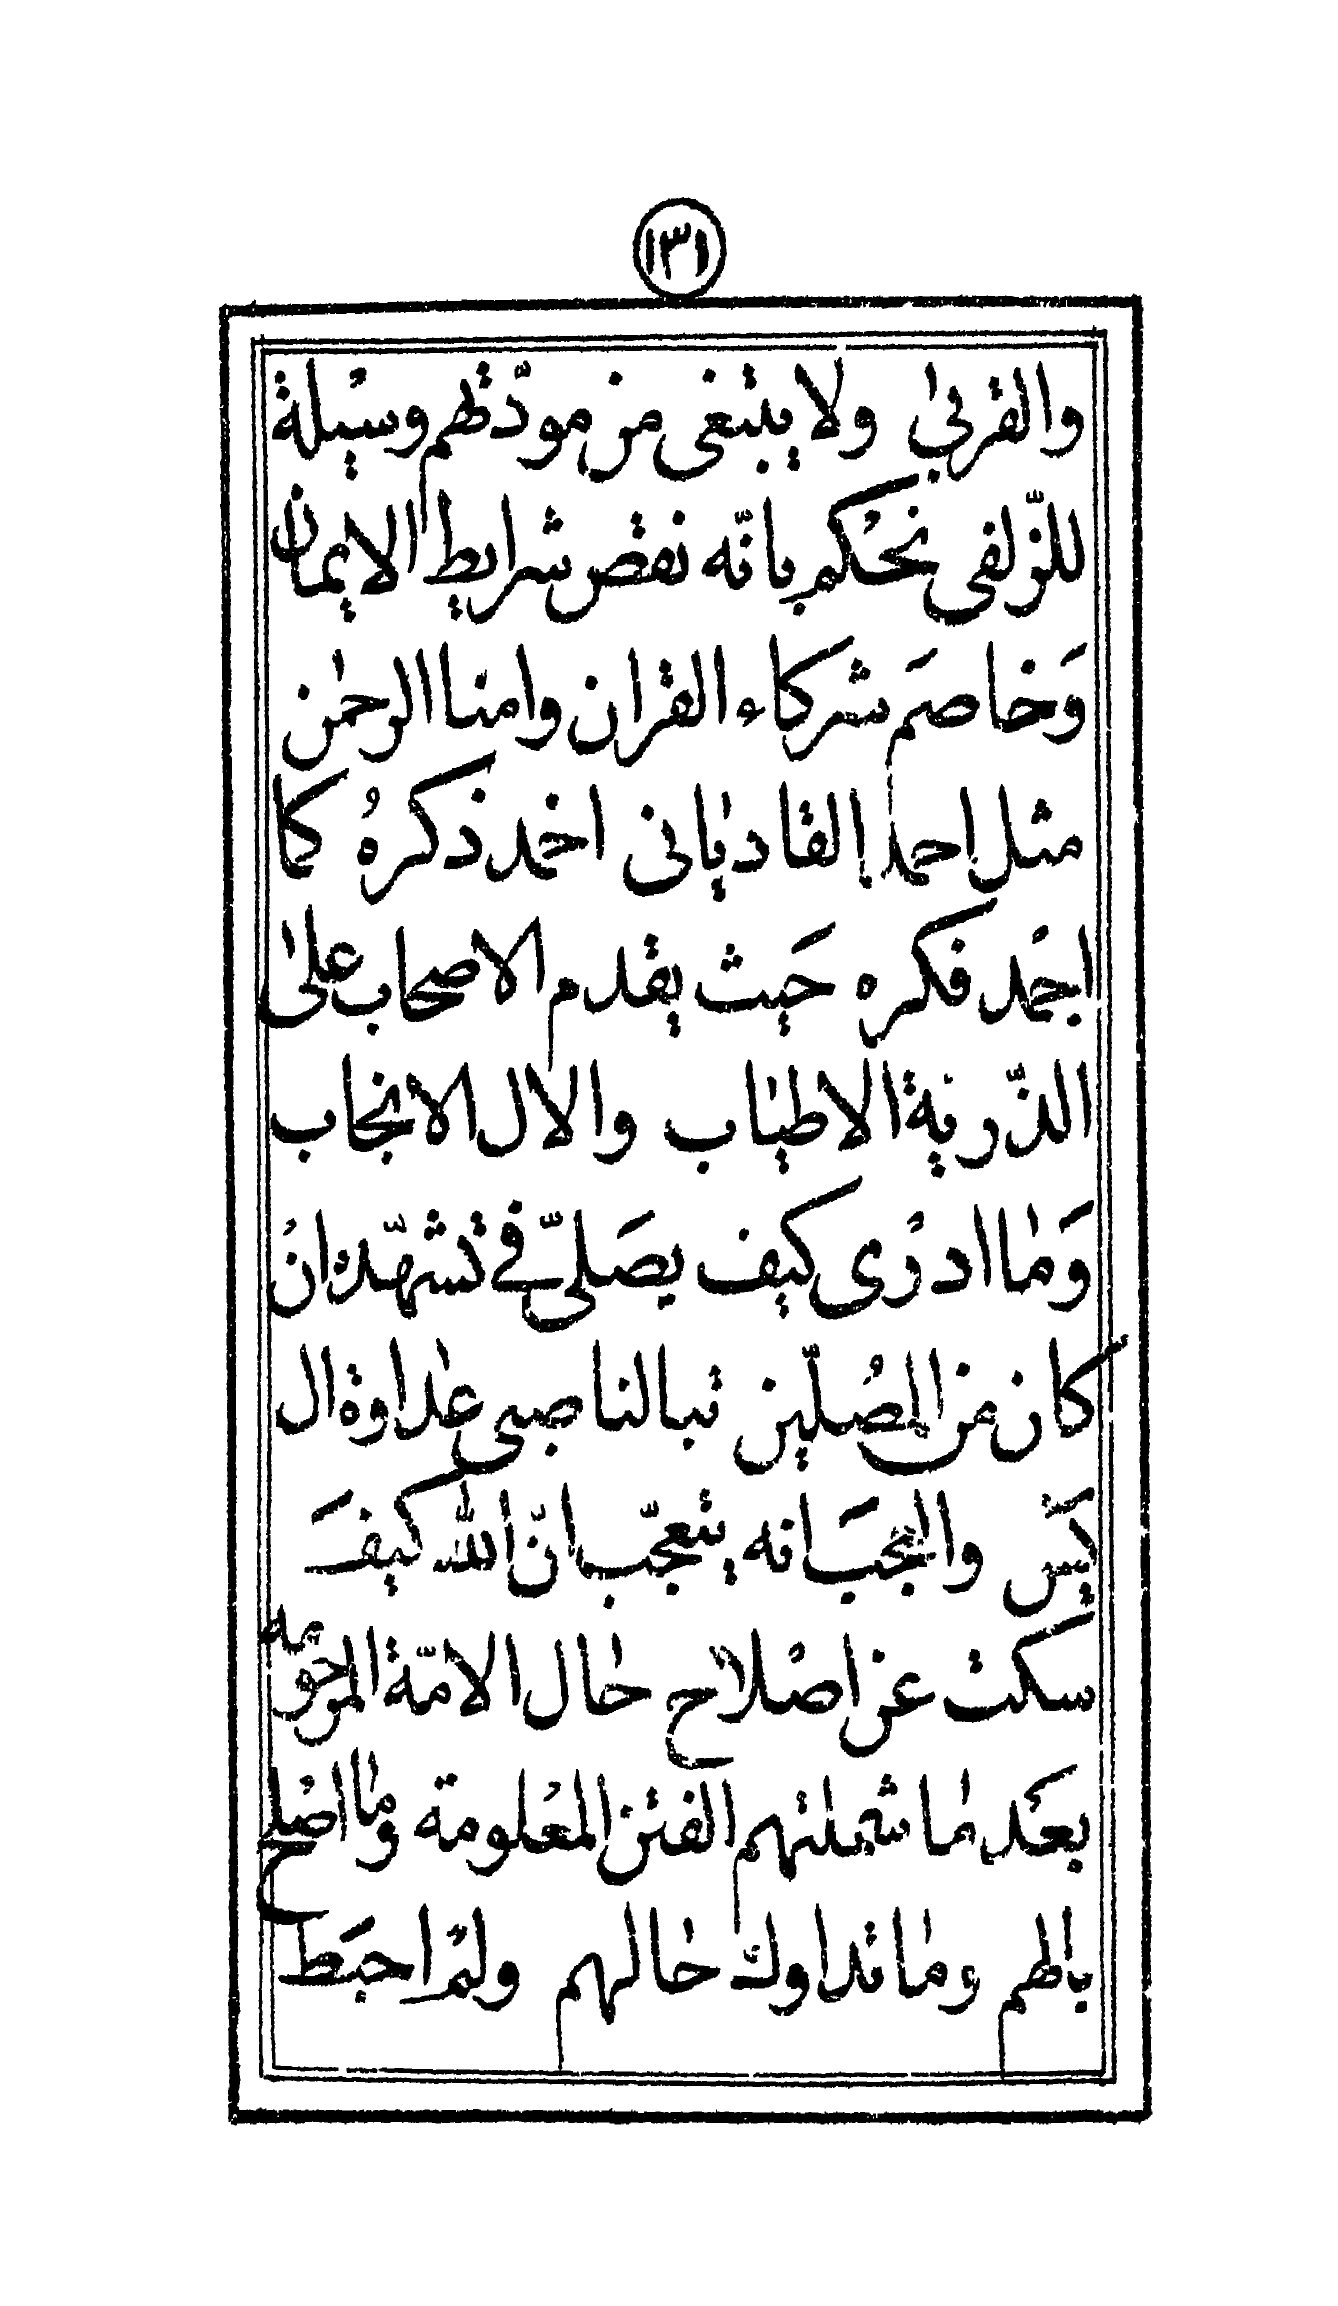 ١٣١
والقربىٰ ولا يبتغى من مودّتهم وسيلة
للزّلفى نحكم بانّه نقص شرايط الايمان
وَخاصَم شركاء القران وامنا الرحمٰن
مثل احمد القاديانى احمد ذكرهُ كما
احمد فكره حَيث يقدم الاصحاب علىٰ
الذّرية الاطيٰاب والال الانجاب
وَمٰا ادرْى كيف يصَلىّ فى تشهّده انْ
كان من المصُلّين تبا لناصبى عدٰاوة ال
يٰس والعجَب انه يتعجّب انّ الله كيفَ
سكت عن اصْلاح حٰال الامّة المرحومه
بعدَ مٰا شملتهم الفتن المعْلومة ومٰا اصْلح
بٰالهم ومٰا تداوك حٰالهم ولمْ احبَط